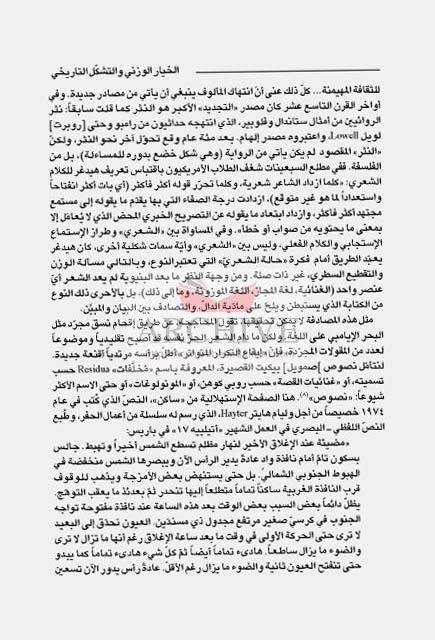 الخيار الوزني والتشكل التاريخي
للثقافة المهيمنة... كلّ ذلك عنى أنّ انتهاك المألوف ينبغي أن يأتي من مصادر جديدة. وفي
أواخر القرن التاسع عشر كان مصدر «التجديد» الأكبر هو النثر كما قلت سابقاً: نثر
الروائيين من أمثال ستاندال وفلوبير، الذي انتهجه حداثيون من رامبو وحتى [روبرت]
لويل Lowell، واعتبروه مصدر إلهام. بعد مئة عام وقع تحوّل آخر نحو النثر، ولكنّ
«النثر» المقصود لم يكن يأتي من الرواية (وهي شكل خضع بدوره للمساءلة)، بل من
الفلسفة. ففي مطلع السبعينات شغف الطلاب الأمريكيون باقتباس تعريف هيدغر للكلام
الشعري: «كلما ازداد الشاعر شعرية، وكلما تحرّر قوله أكثر فأكثر (أي بات أكثر انفتاحاً
واستعداداً لما هو غير متوقع)، ازدادت درجة الصفاء التي بها يقدّم ما يقوله إلى مستمع
مجتهد أكثر فأكثر، وازداد ابتعاد ما يقوله عن التصريح الخبري المحض الذي لا يُعامَل إلا
بمعنى ما يحتويه من صواب أو خطأ». وفي المساواة بين «الشعري» وطراز الإستماع
الإستجابي والكلام الفعلي، وليس بين «الشعري» وأيّة سمات شكلية أخرى، كان هيدغر
يعبّد الطريق أمام فكرة «حالة الشعري» التي تعتبر النوع، وبالتالي مسألة الوزن
والتقطيع السطري، غير ذات صلة. ومن وجهة النظر ما بعد البنيوية لم يعد الشعر أيّ
عنصر واحد (الغنائية، لغة المجاز، اللغة الموزونة، وما إلى ذلك)، بل بالأحرى ذلك النوع
من الكتابة الذي يستبطن ويلحّ على ماديّة الدال، والتصادف بين البيان والمبيَّن.
مثل هذه المصادفة لا يمكن تحقيقها، تقول المحاججة، عن طريق إقحام نسق مجرّد مثل
البحر الإيامبي على اللغة. ولكن ما دام الشعر الحرّ نفسه قد أصبح تقليدياً وموضوعاً
لعدد من المقولات المجرّدة، فإن «إيقاع التكرار المتواتر» أطلّ برأسه مرتدياً أقنعة جديدة.
لنتأمل نصوص [صموئيل] بيكيت القصيرة، المعروفة باسم «مُخلَّفات» Residua حسب
تسميته، أو «غنائيات القصة» حسب روبي كوهن، أو «المونولوغات» أو حتى الاسم الأكثر
شيوعاً: «نصوص»(٨). هنا الصفحة الإستهلالية من «ساكن»، النصّ الذي كُتب في عام
١٩٧٤ خصيصاً من أجل وليام هايتر Hayter، الذي رسم له سلسلة من أعمال الحفر، وطُبع
النصّ اللفظي ـ البصري في العمل الشهير «أتيلييه ١٧» في باريس:
«مضيئة عند الإغلاق الأخير لنهار مظلم تسطع الشمس أخيراً وتهبط. جالس
بسكون تامّ أمام نافذة واد عادة يدير الرأس الآن ويبصرها الشمس منخفضة في
الهبوط الجنوبي الشماليّ. بل حتى يستنهض بعض الأمزجة ويذهب للوقوف
قرب النافذة الغربية ساكناً تماماً متطلعاً إليها تنحدر ثمّ بعدئذ ما يعقب التوهّج.
يظلّ دائماً بعض السبب بعض الوقت بعد هذه الساعة عند نافذة مفتوحة تواجه
الجنوب في كرسيّ صغير مرتفع مجدول ذي مسندَين. العيون تحدّق إلى البعيد
لا ترى حتى الحركة الأولى في وقت ما بعد ساعة الإغلاق رغم أنها ما تزال لا ترى
والضوء ما يزال ساطعاً. هادىء تماماً أيضاً ثمّ كلّ شيء هادىء تماماً كما يبدو
حتى تنفتح العيون ثانية والضوء ما يزال رغم الأقلّ. عادةً رأس يدور الآن تسعين
ARCHIVE